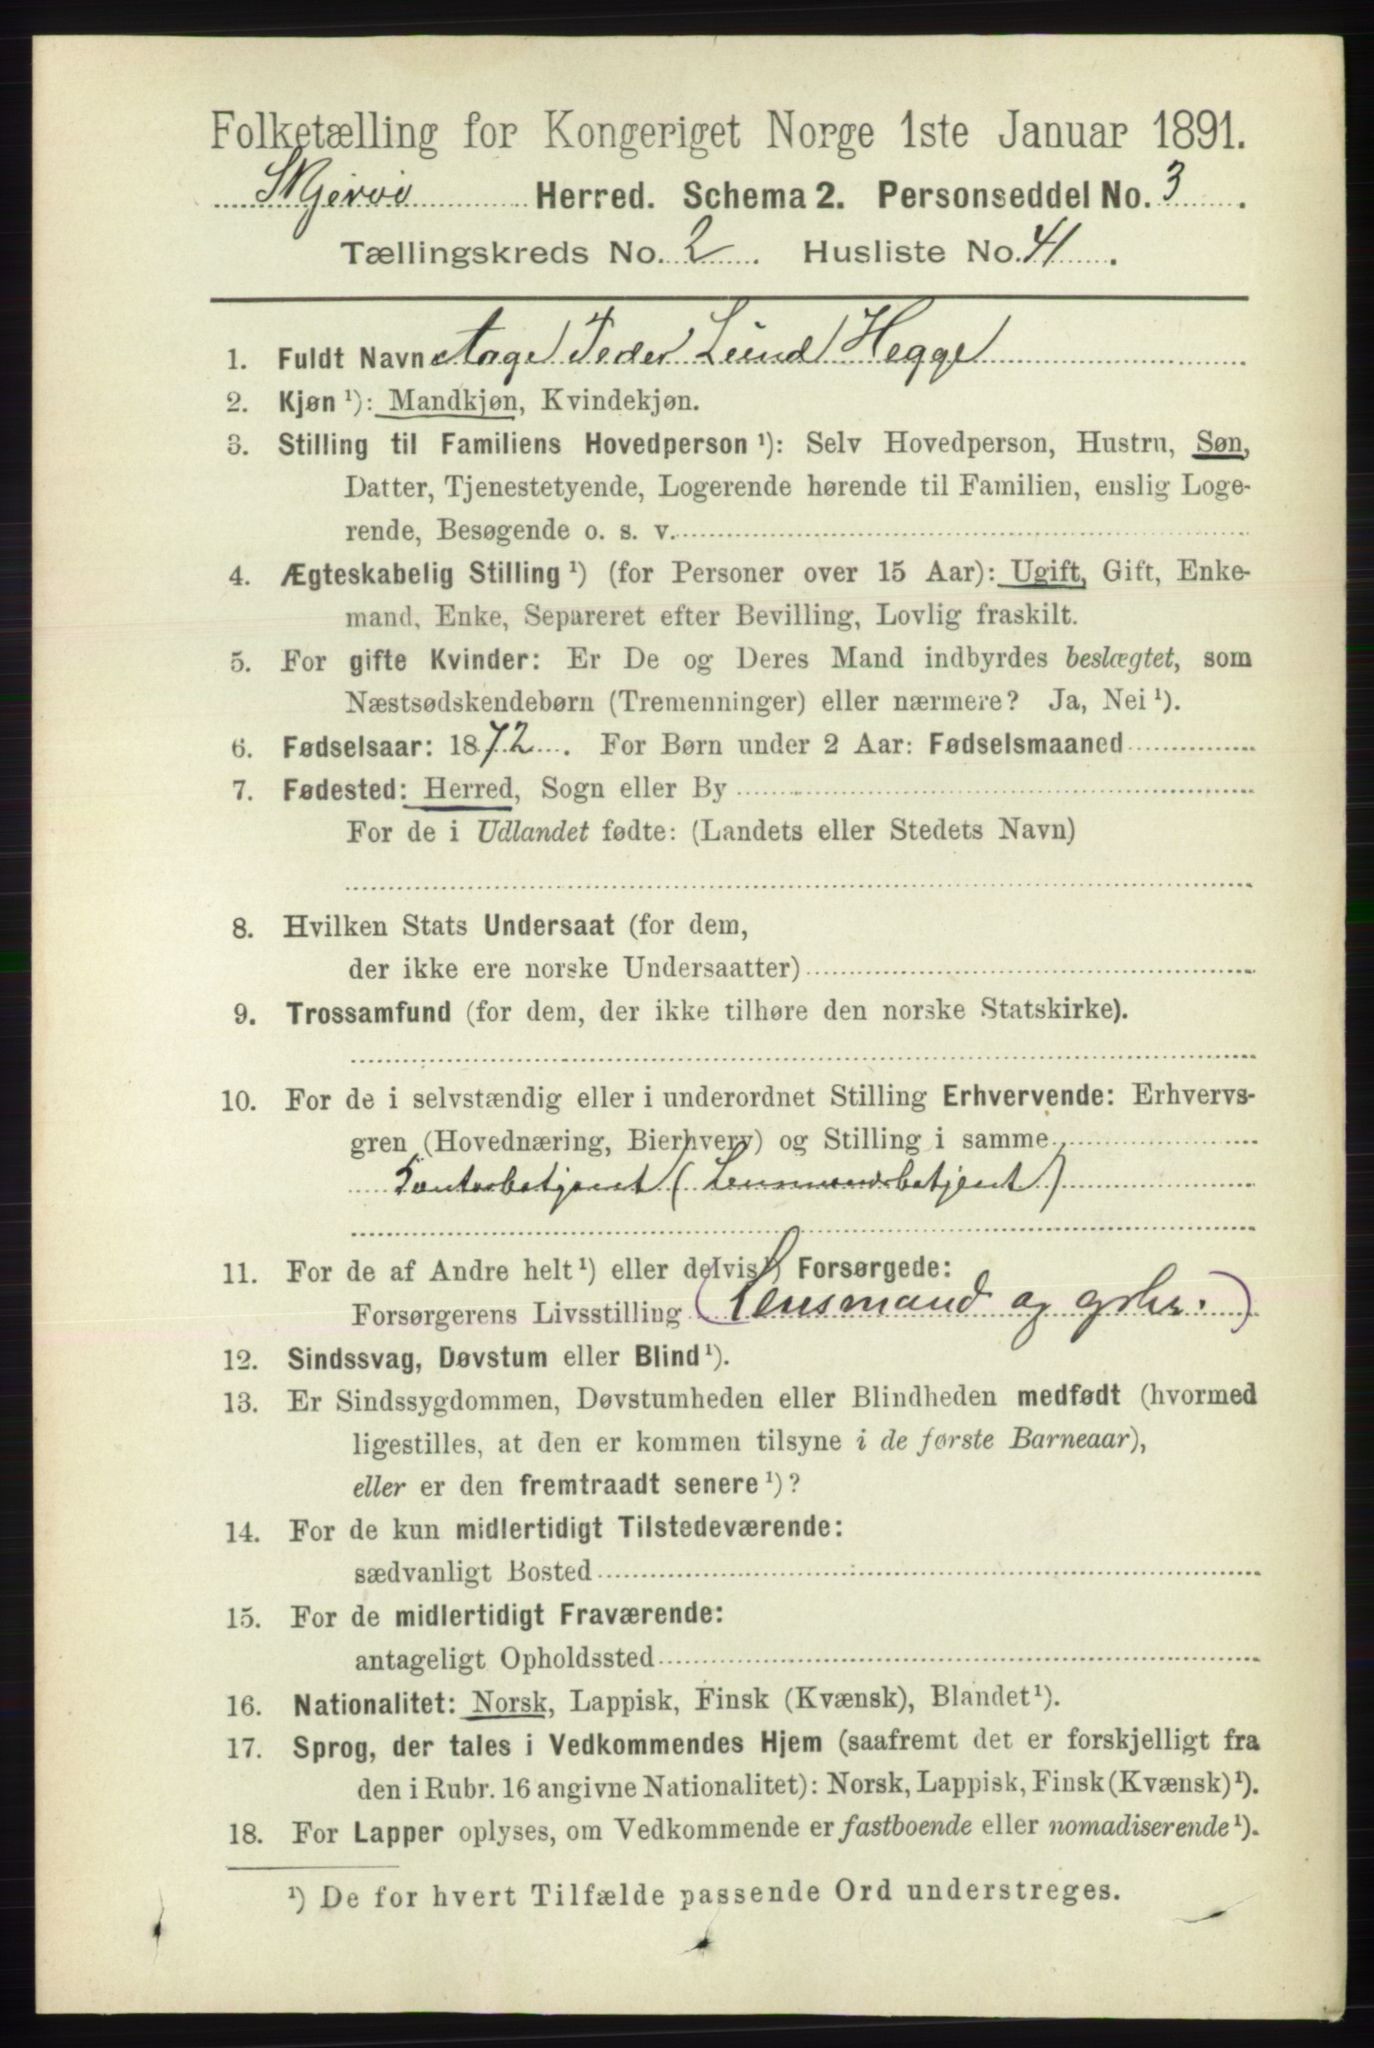 Folketælling for Kongeriget Norge 1ste Januar 1891.
Skjervø Herred. Schema 2. Personseddel No. 3.
Tællingskreds No. 2. Husliste No. 41.
1. Fuldt Navn Aage Peder Lund Hegge
2. Kjøn ¹): Mandkjøn, Kvindekjøn.
3. Stilling til Familiens Hovedperson ¹): Selv Hovedperson, Hustru, Søn,
Datter, Tjenestetyende, Logerende hørende til Familien, enslig Loge-
rende, Besøgende o. s. v.
4. Ægteskabelig Stilling ¹) (for Personer over 15 Aar): Ugift, Gift, Enke-
mand, Enke, Separeret efter Bevilling, Lovlig fraskilt.
5. For gifte Kvinder: Er De og Deres Mand indbyrdes beslægtet, som
Næstsødskendebørn (Tremenninger) eller nærmere? Ja, Nei ¹).
6. Fødselsaar: 1872. For Børn under 2 Aar: Fødselsmaaned
7. Fødested: Herred, Sogn eller By
For de i Udlandet fødte: (Landets eller Stedets Navn)
8. Hvilken Stats Undersaat (for dem,
der ikke ere norske Undersaatter)
9. Trossamfund (for dem, der ikke tilhøre den norske Statskirke).
10. For de i selvstændig eller i underordnet Stilling Erhvervende: Erhvervs-
gren (Hovednæring, Bierhverv) og Stilling i samme
Kontorbetjent (Lensmandsbetjent)
11. For de af Andre helt ¹) eller delvis ¹) Forsørgede:
Forsørgerens Livsstilling (Lensmand og)
12. Sindssvag, Døvstum eller Blind ¹).
13. Er Sindssygdommen, Døvstumheden eller Blindheden medfødt (hvormed
ligestilles, at den er kommen tilsyne i de første Barneaar),
eller er den fremtraadt senere ¹)?
14. For de kun midlertidigt Tilstedeværende:
sædvanligt Bosted
15. For de midlertidigt Fraværende:
antageligt Opholdssted
16. Nationalitet: Norsk, Lappisk, Finsk (Kvænsk), Blandet ¹).
17. Sprog, der tales i Vedkommendes Hjem (saafremt det er forskjelligt fra
den i Rubr. 16 angivne Nationalitet): Norsk, Lappisk, Finsk (Kvænsk) ¹).
18. For Lapper oplyses, om Vedkommende er fastboende eller nomadiserende ¹).
¹) De for hvert Tilfælde passende Ord understreges.